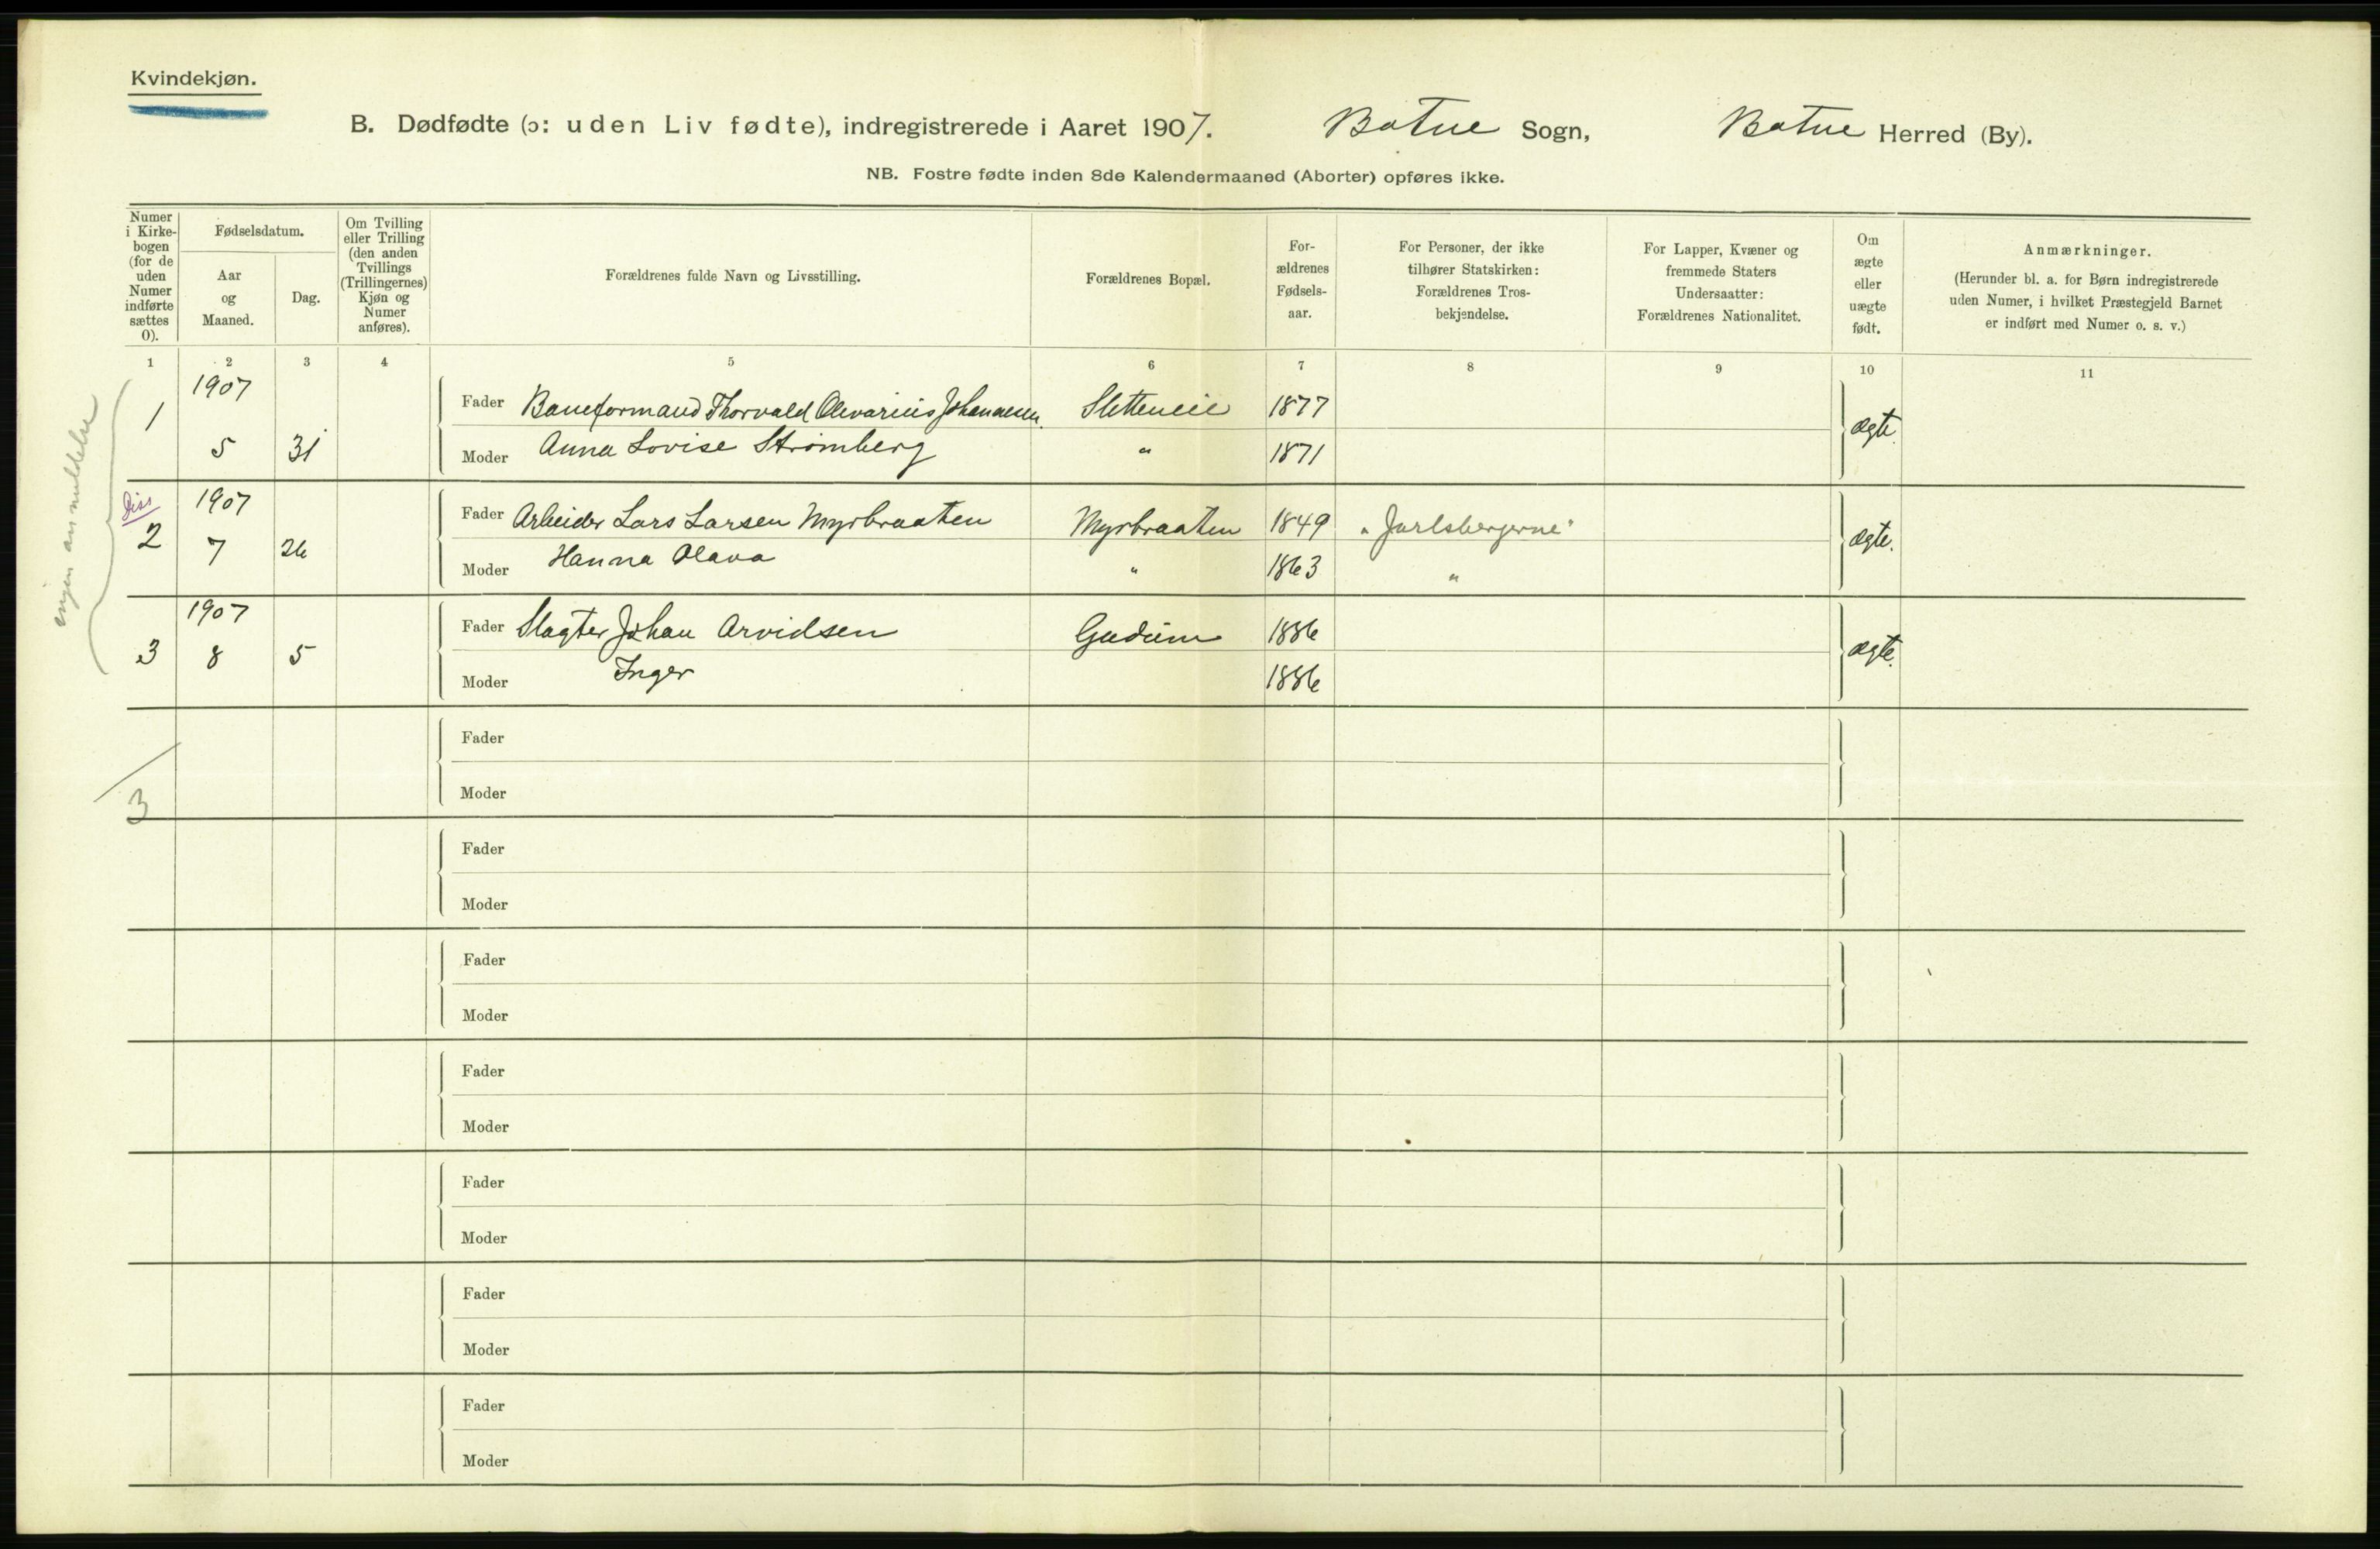 Kvindekjøn.
B. Dødfødte (ɔ: uden Liv fødte), indregistrerede i Aaret 1907. Botne Sogn, Botne Herred (By).
NB. Fostre fødte inden 8de Kalendermaaned (Aborter) opføres ikke.
Numer i Kirkebogen (for de uden Numer indførte sættes 0).
Fødselsdatum.
Aar og Maaned.
Dag.
Om Tvilling eller Trilling (den anden Tvillings (Trillingernes) Kjøn og Numer anføres).
Forældrenes fulde Navn og Livsstilling.
Forældrenes Bopæl.
For-
ældrenes
Fødsels-
aar.
For Personer, der ikke
tilhører Statskirken:
Forældrenes Tros-
bekjendelse.
For Lapper, Kvæner og
fremmede Staters
Undersaatter:
Forældrenes Nationalitet.
Om
ægte
eller
uægte
født.
Anmærkninger.
(Herunder bl. a. for Børn indregistrerede
uden Numer, i hvilket Præstegjeld Barnet
er indført med Numer o. s. v.)
1 2 3 4 5 6 7 8 9 10 11
ingen anmeldelse
1907
1 5 31
Fader Baneformand Thorvald Olevarius Johannesen. 1877
ægte.
Moder Anna Lovise Strømberg " 1871
Diss
1907
2 7 26
Fader Arbeider Lars Larsen Myrbraaten Myrbraaten 1849 "Jarlsbergerne"
ægte.
Moder Hanna Olava " 1863 "
1907
3 8 5
Fader Slagter Johan Arvidsen Gudum 1886
ægte.
Moder Inger 1886
3
Fader
Moder
Fader
Moder
Fader
Moder
Fader
Moder
Fader
Moder
Fader
Moder
Fader
Moder